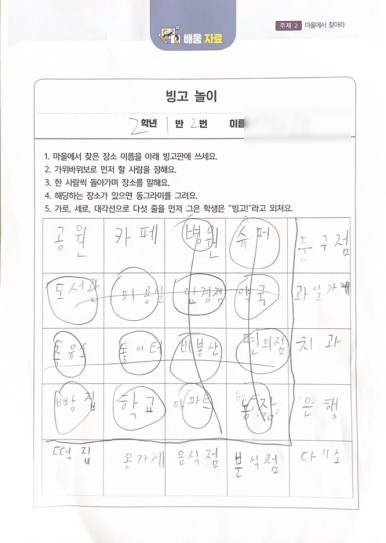 배움 자료
주제 2 마을에서 찾아라
빙고 놀이
2학년 1반 2번 이름
1. 마을에서 찾은 장소 이름을 아래 빙고판에 쓰세요.
2. 가위바위보로 먼저 할 사람을 정해요.
3. 한 사람씩 돌아가며 장소를 말해요.
4. 해당하는 장소가 있으면 동그라미를 그려요.
5. 가로, 세로, 대각선으로 다섯 줄을 먼저 그은 학생은 "빙고!"라고 외쳐요.
공원 카페 병원 슈퍼 문구점
도서관 미용실 안경점 약국 과일가게
놀이터 비봉산 편의점 치과
빵집 학교 아파트 은행
떡집 옷가게 음식점 분식점 다이소